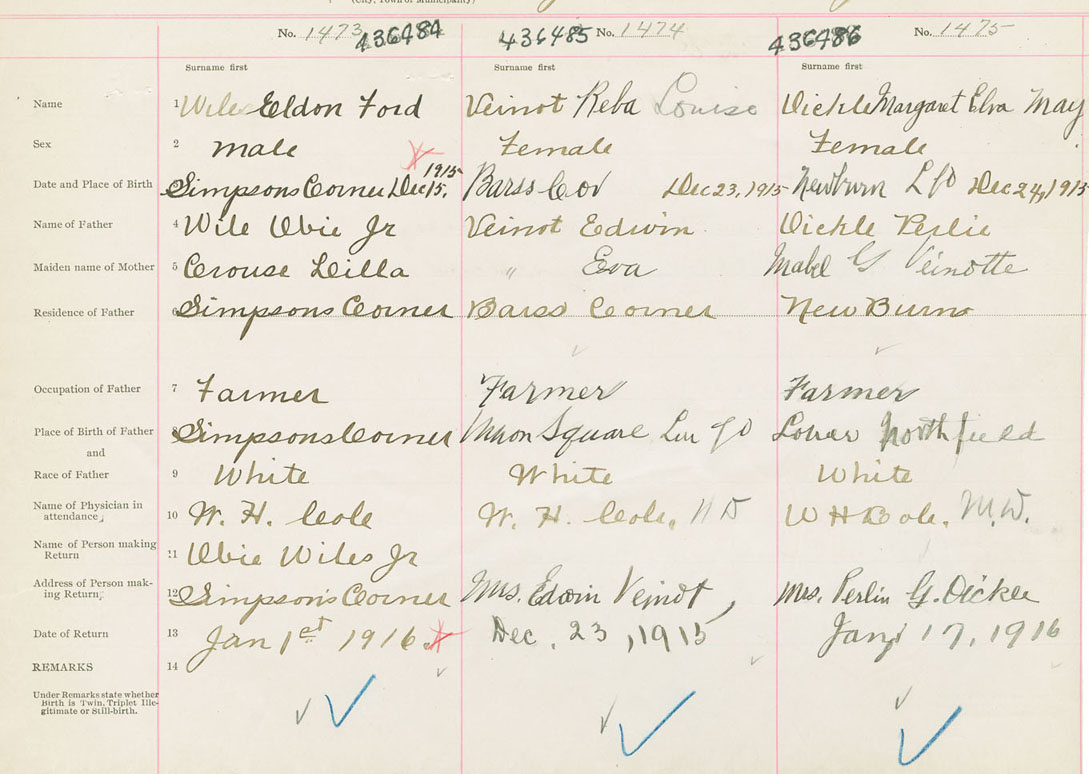 (City, Town or Municipality)
No. 1473 436484 436485 No. 1474 436486 No. 1475
Surname first Surname first Surname first
Name 1 Wile Eldon Ford Veinot Reba Louise Dickle Margaret Elva May
Sex 2 male Female Female
1915
Date and Place of Birth 3 Simpsons Corner Dec 15, Barss Cor Dec 23, 1915 Newburn L Co Dec 24, 1915
Name of Father 4 Wile Obie Jr Veinot Edwin Dickle Perlie
Maiden name of Mother 5 Crouse Lilla " Eva Mabel G Veinotte
Residence of Father 6 Simpsons Corner Barss Corner New Burn
Occupation of Father 7 Farmer Farmer Farmer
Place of Birth of Father 8 Simpsons Corner Square Lun Co Lower Northfield
and
Race of Father 9 White White White
Name of Physician in
attendance, 10 W. H. Cole W. H. Cole, M D W H Cole, M.D.
Name of Person making
Return 11 Obie Wiles Jr
Address of Person mak-
ing Return, 12 Simpson's Corner Mrs. Edwin Veinot, Mrs. Perlin G. Dickee
Date of Return 13 Jan 1st 1916 Dec. 23, 1915 Jany 17, 1916
REMARKS 14
Under Remarks state whether
Birth is Twin, Triplet Ille-
gitimate or Still-birth.